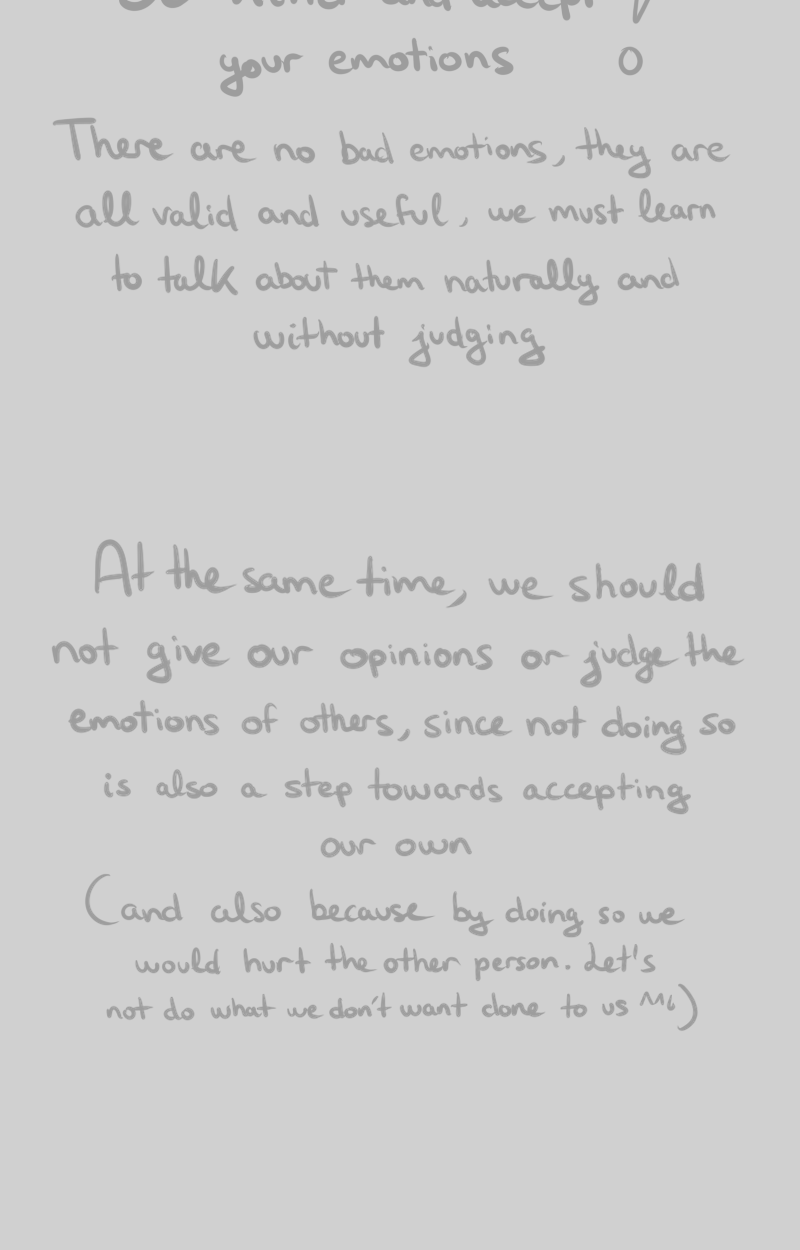 your emotions
There are no bad emotions, they are
all valid and useful, we must learn
to talk about them naturally and
without judging
At the same time, we should
not give our opinions or judge the
emotions of others, since not doing so
is also a step towards accepting
our own
(and also because by doing so we
would hurt the other person. Let's
not do what we don't want done to us ^^)